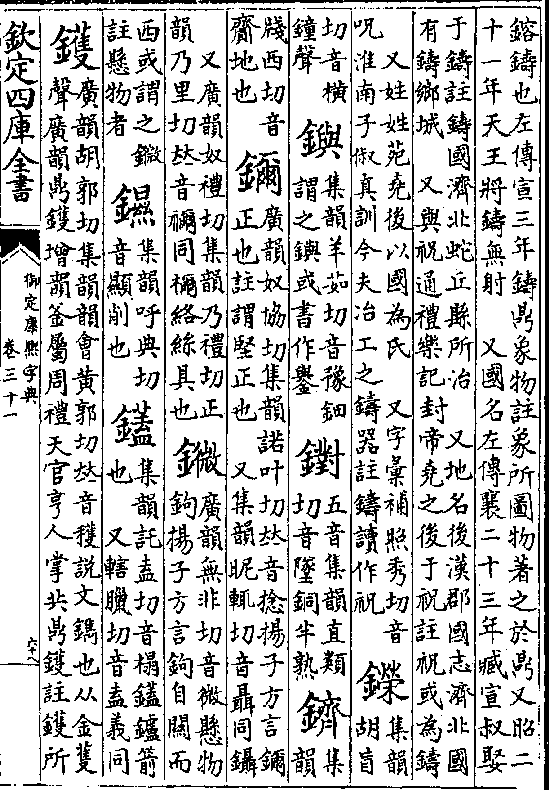 鎔鑄也左傳宣三年鑄鼎象物註象所圖物著之於鼎又昭二
十一年天王將鑄無射　又國名左傳襄二十三年臧宣叔娶
于鑄註鑄國濟北蛇丘縣所治　又地名後漢郡國志濟北國
有鑄鄉城　又與祝通禮樂記封帝堯之後于祝註祝或為鑄
又姓姓苑堯後以國為氏　又字彙補照秀切音
呪淮南子俶真訓今夫冶工之鑄器註鑄讀作祝
鑅
集韻
胡盲
切音橫
鐘聲
鸒
集韻羊茹切音豫鈿
謂之鸒或書作鐢
鐓
五音集韻直類
切音墜銅半熟
鑇
集
韻
牋西切音
齎地也
鑈
廣韻奴協切集韻諾叶切𠀤音捻揚子方言鑈
正也註謂堅正也　又集韻昵輒切音聶同鑷
又廣韻奴禮切集韻乃禮切正
韻乃里切𠀤音禰同檷絡絲具也
鑀
廣韻無非切音微懸物
鉤揚子方言鉤自關而
西或謂之鑀
註懸物者
㬎
集韻呼典切
音顯削也
鑉
集韻託盍切音榻鑉鑪箭
也　又轄臘切音盍義同
鑊
廣韻胡郭切集韻韻會黃郭切𠀤音穫說文鐫也从金蒦
聲廣韻鼎鑊增韻釜屬周禮天官亨人掌共鼎鑊註鑊所
欽定四庫全書
御定康熙字典
卷三十一
六十八